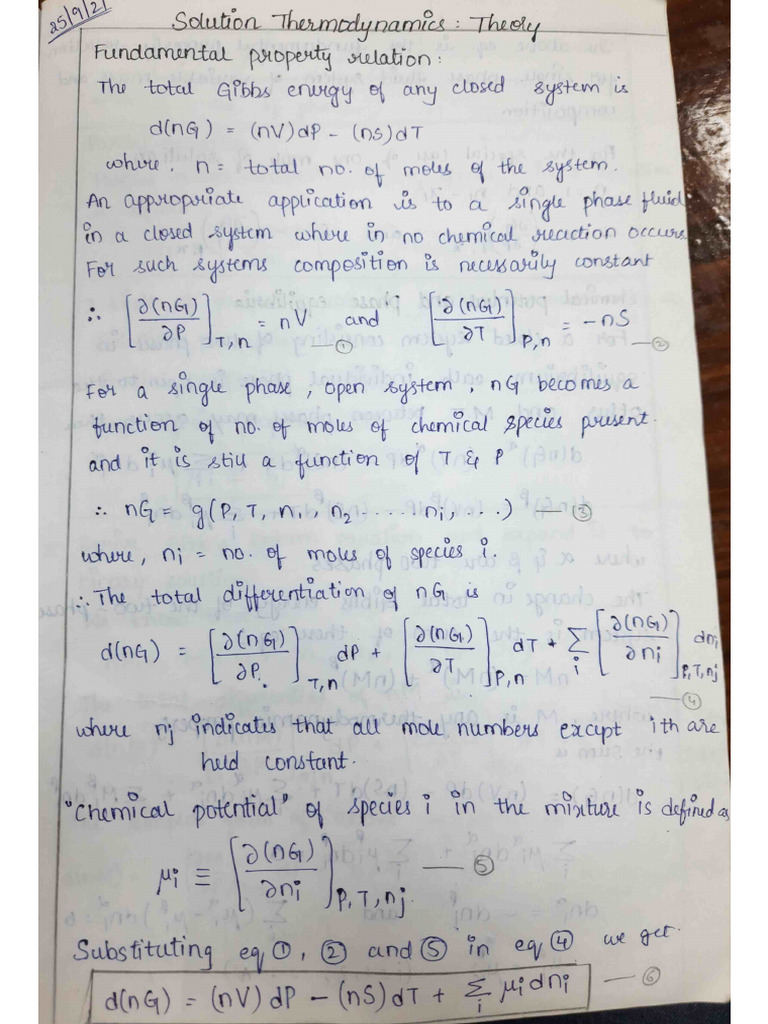 25/9/21
Solution Thermodynamics: Theory
Fundamental property relation:
The total Gibbs energy of any closed system is
d(nG) = (nV)dP - (nS)dT
where, n = total no. of moles of the system.
An appropriate application is to a single phase fluid
in a closed system where in no chemical reaction occurs.
For such systems composition is necessarily constant
∴ [∂(nG)/∂P]T,n = nV —① and [∂(nG)/∂T]P,n = -nS —②
For a single phase, open system, nG becomes a
function of no. of moles of chemical species present.
and it is still a function of T & P
∴ nG = g(P, T, n1, n2 .... ni, ...) —③
where, ni = no. of moles of species i.
∴ The total differentiation of nG is
d(nG) = [∂(nG)/∂P]T,n dP + [∂(nG)/∂T]P,n dT + Σi [∂(nG)/∂ni]P,T,nj dni —④
where nj indicates that all mole numbers except ith are
held constant.
"Chemical potential" of species i in the mixture is defined as
μi ≡ [∂(nG)/∂ni]P,T,nj —⑤
Substituting eq ①, ② and ⑤ in eq ④ we get.
d(nG) = (nV)dP - (nS)dT + Σi μi dni —⑥